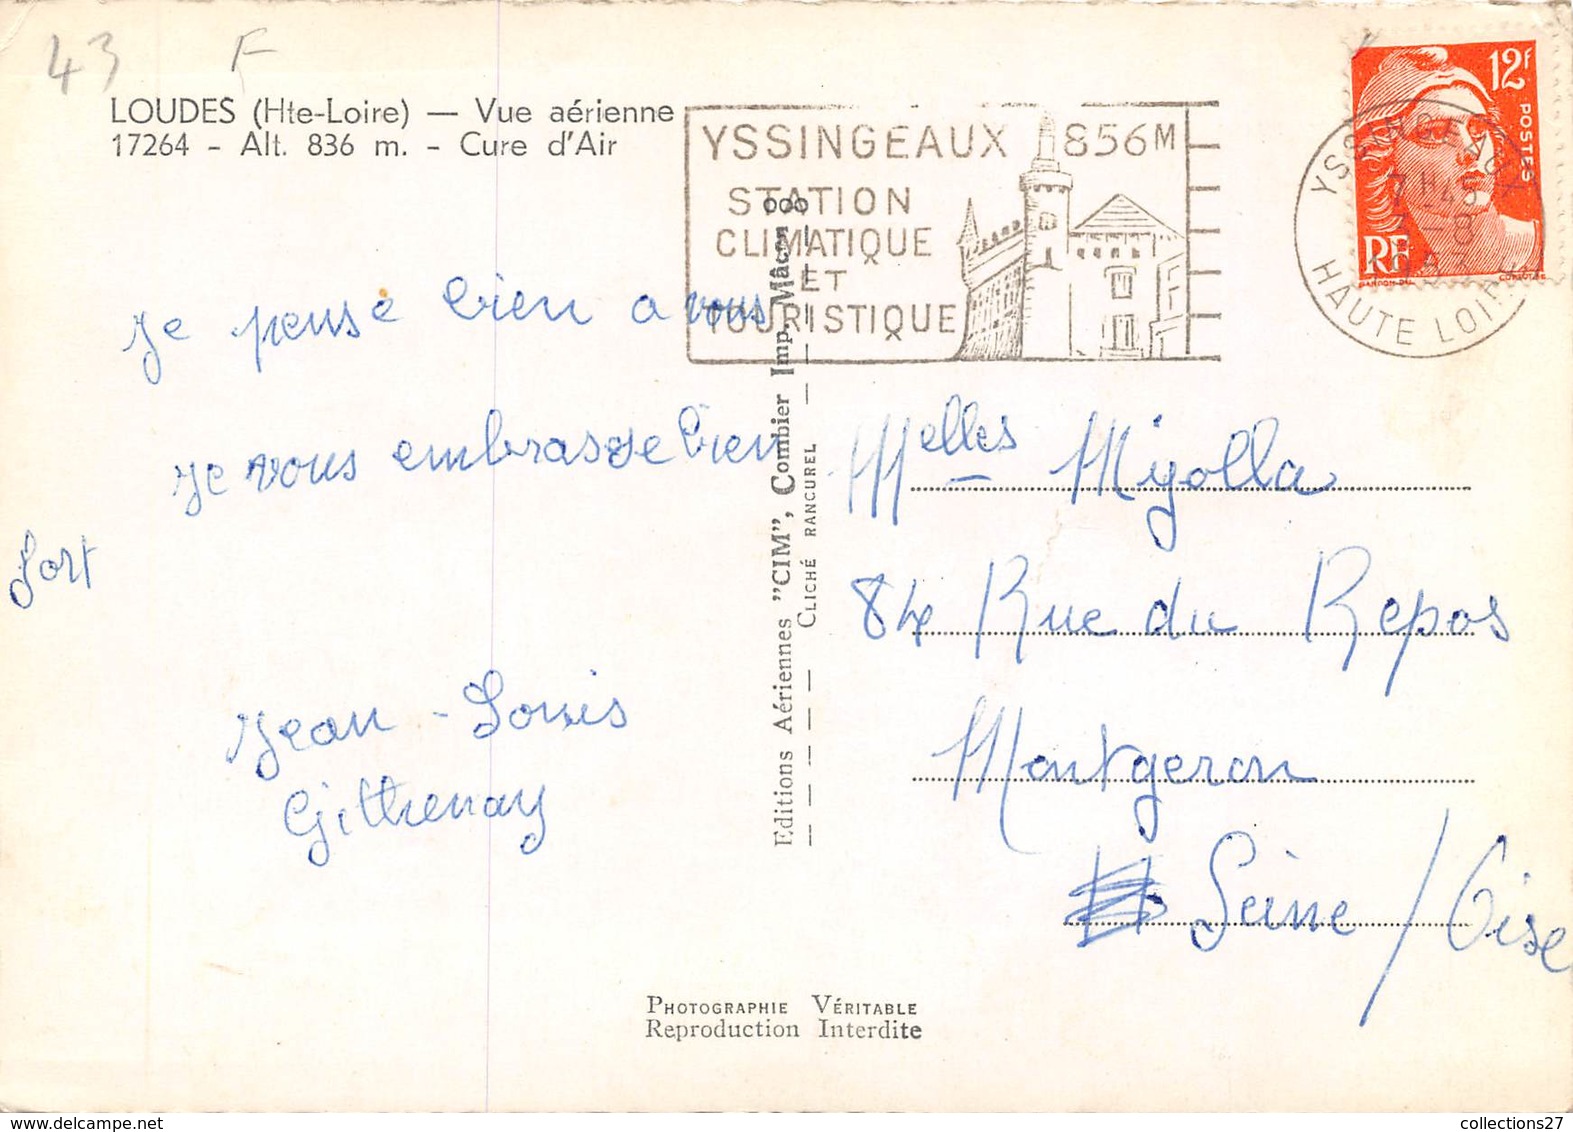 43 F
LOUDES (Hte-Loire) — Vue aérienne
17264 - Alt. 836 m. - Cure d'Air
YSSINGEAUX 856M
STATION
CLIMATIQUE
ET
TOURISTIQUE
YSSINGEAUX
7H45
7-8
HAUTE LOIRE
12F
POSTES
RF
GANDON DEL
je pense bien a vous
je vous embrasse bien
fort
Jean-Louis
Editions Aériennes "CIM", Combier Imp. Mâcon
CLICHÉ RANCUREL
Melles Migolla
84 Rue du Repos
Montgeron
Seine / Oise
PHOTOGRAPHIE VÉRITABLE
Reproduction Interdite
collections27